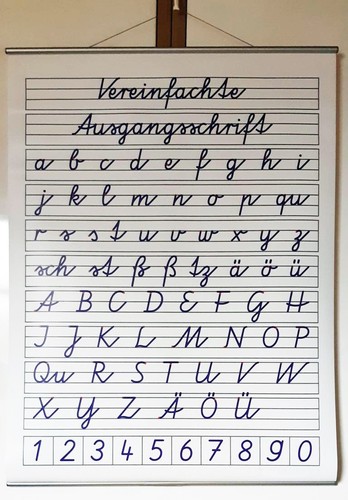 Vereinfachte
Ausgangsschrift
a b c d e f g h i
j k l m n o p qu
r s s t u v w x y z
sch st ß ß tz ä ö ü
A B C D E F G H
I J K L M N O P
Qu R S T U V W
X Y Z Ä Ö Ü
1 2 3 4 5 6 7 8 9 0